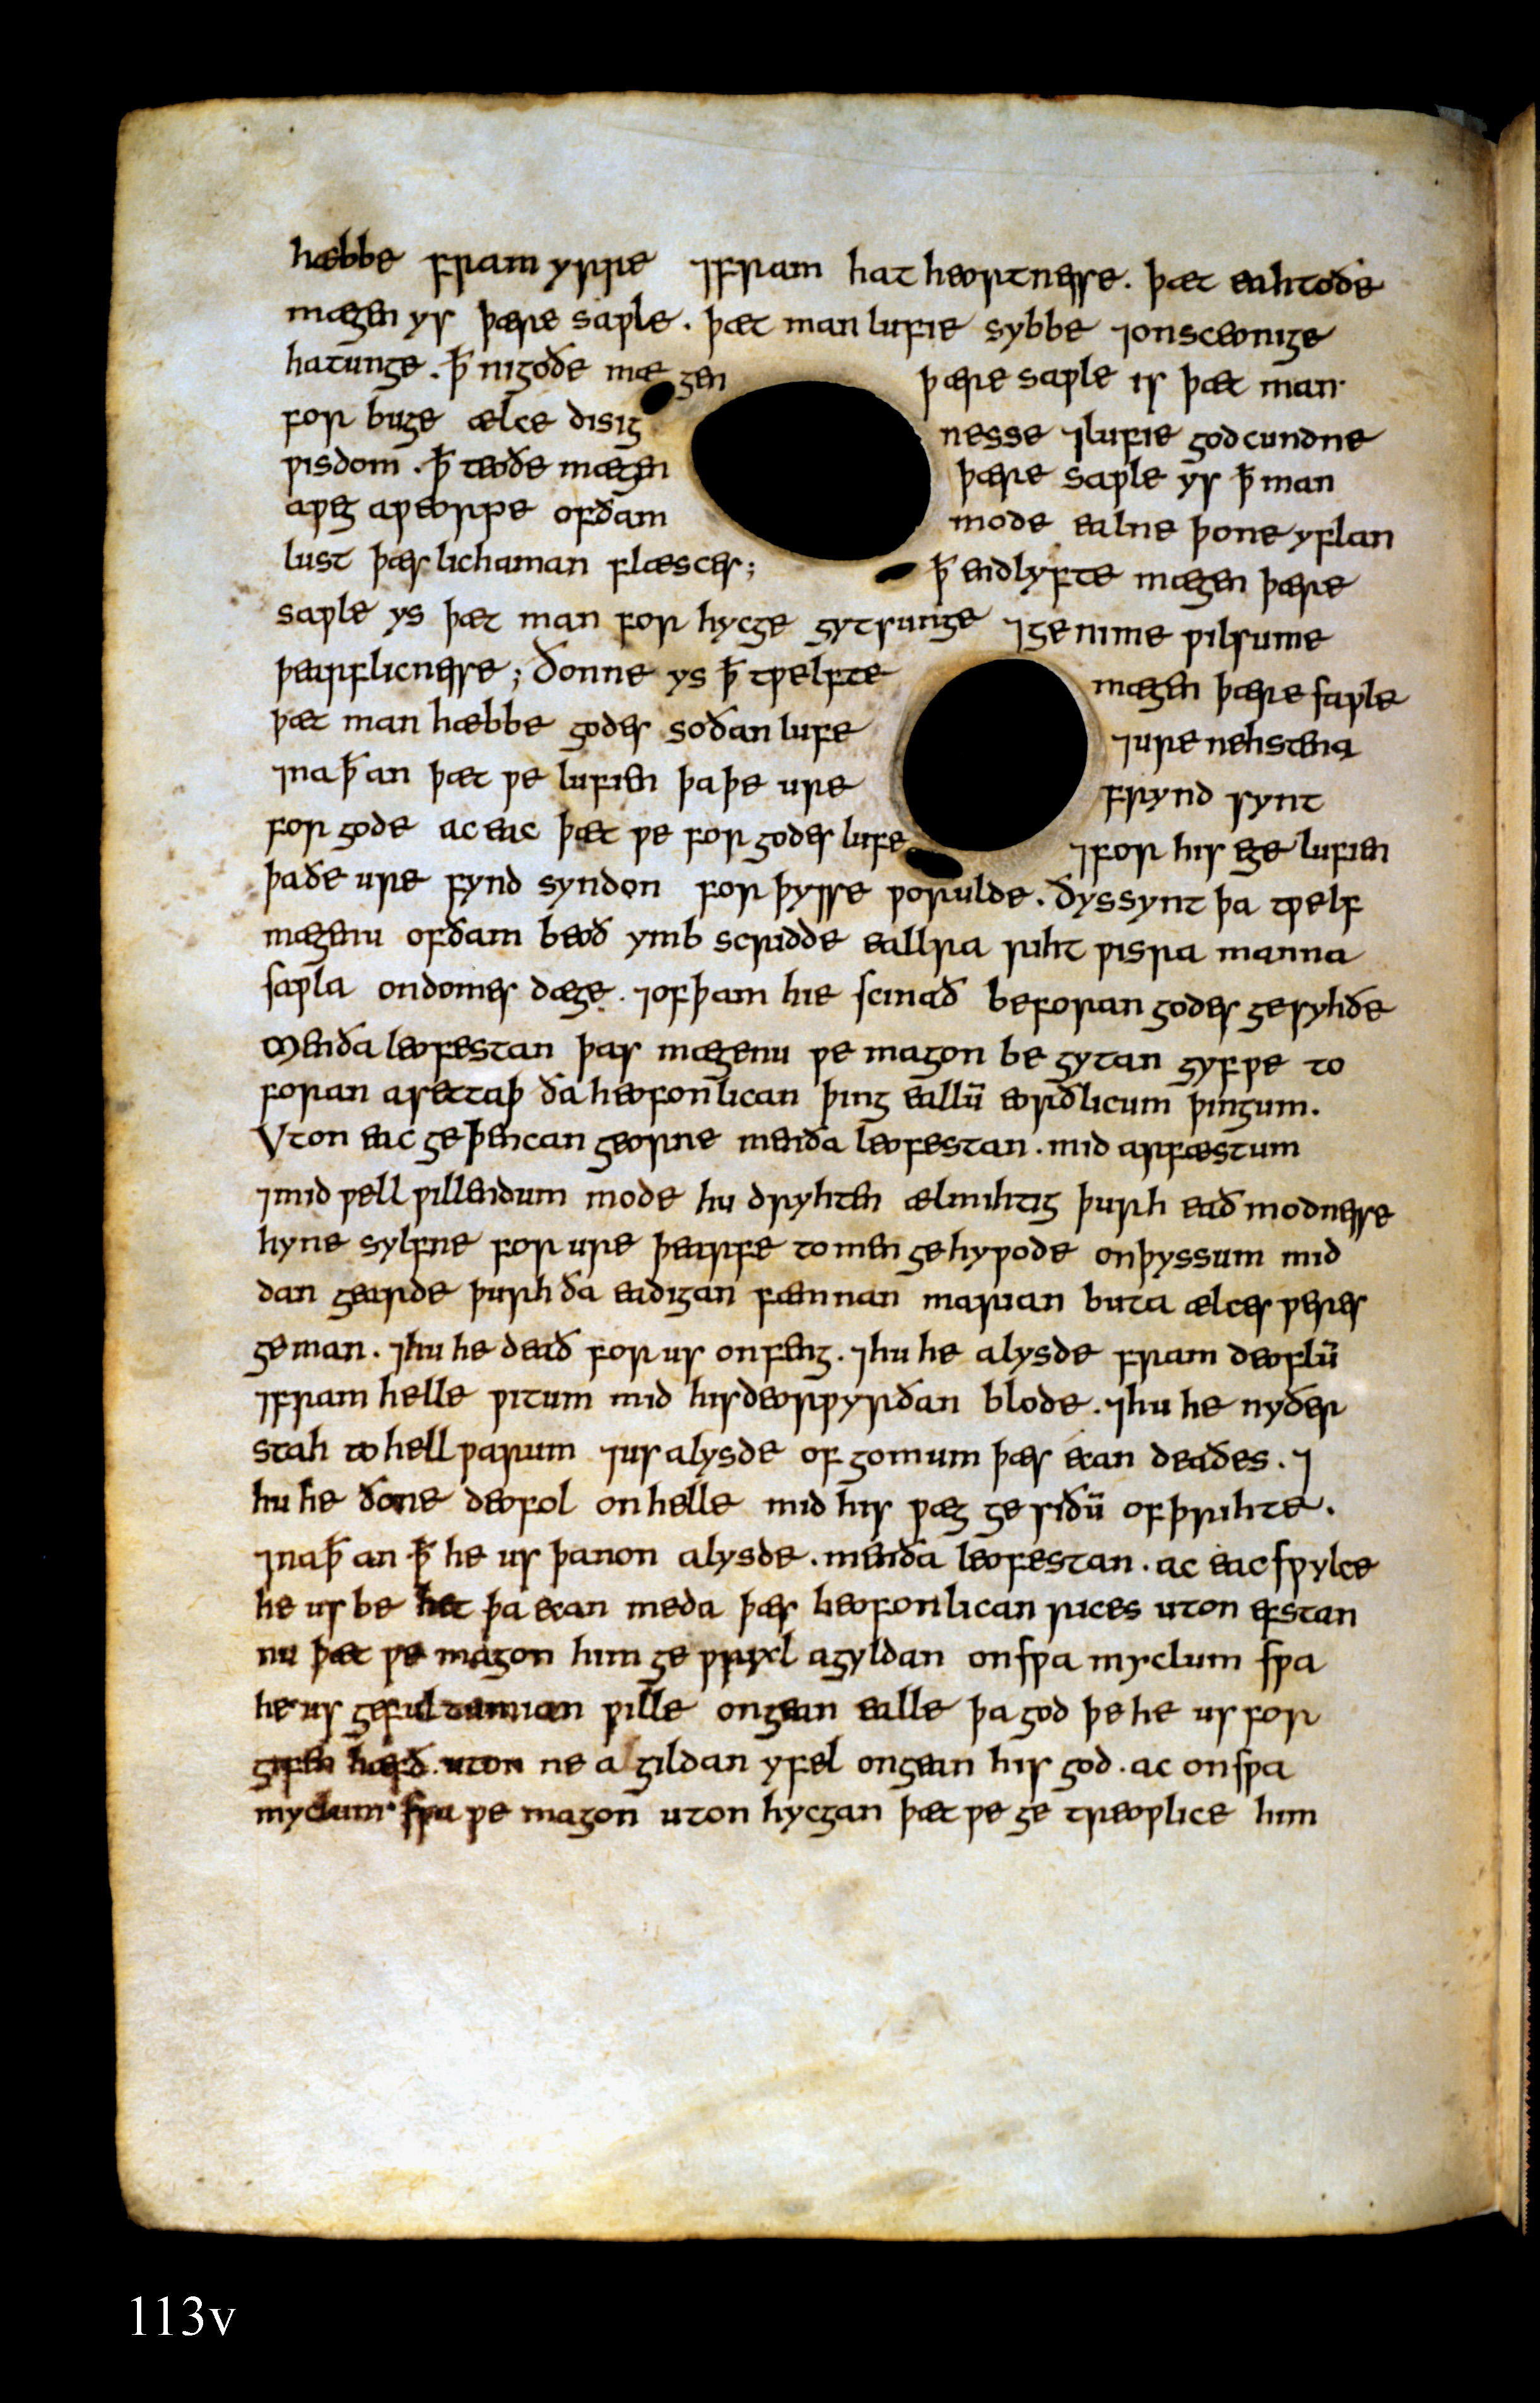 hæbbe fram yrre ⁊fram hat heortnesse. þæt eahtoðe
mægen ys þære saƿle. þæt man lufie sybbe ⁊onsceonige
hatunge. ꝥ nigoðe mæ gen þære saƿle is þæt man
for buge ælce disig nesse ⁊lufie godcundne
ƿisdom. ꝥ teoðe mægen þære saƿle ys ꝥ man
aƿeg aƿeorpe ofðam mode ealne þone yflan
lust þæs lichaman flæsces; ꝥ endlyfte mægen þære
saƿle ys þæt man for hycge gytsunge ⁊ge nime ƿilsume
þearflicnesse; ðonne ys ꝥ tƿelfte mægen þære saƿle
þæt man hæbbe godes soðan lufe ⁊ure nehstena
⁊na ꝥ an þæt ƿe lufien þa þe ure frynd synt
for gode ac eac þæt ƿe for godes lufe ⁊for his ege lufien
þaðe ure fynd syndon for þysse ƿorulde. ðyssynt þa tƿelf
mægenu ofðam beoð ymb scridde eallra riht ƿisra manna
saƿla ondomes dæge. ⁊ofþam hie scinað beforan godes gesyhðe
Menða leofestan þas mægenu ƿe magon be gytan gyf ƿe to
foran asettaþ ða heofonlican þing eallū eorðlicum þingum.
Vton eac geþencan georne menða leofestan. mid arfæstum
⁊mid ƿell ƿillendum mode hu dryhten ælmihtig þurh eað modnesse
hyne sylfne for ure þearfe to men gehyƿode onþyssum mid
dan gearde þurh ða eadigan fæmnan marian buta ælces ƿeres
geman. ⁊hu he deað for us onfeng. ⁊hu he alysde fram deoflū
⁊fram helle ƿitum mid hisdeorƿyrðan blode. ⁊hu he nyðer
stah to hell ƿarum ⁊us alysde of gomum þæs ecan deaðes. ⁊
hu he ðone deofol onhelle mid his ƿæg ge siðū ofþrihte.
⁊na ꝥ an ꝥ he us þanon alysde. menða leofestan. ac eac sƿylce
he us be het þa ecan meda þæs heofonlican rices uton efstan
nu þæt ƿe magon him ge ƿrixl agyldan onsƿa myclum sƿa
he us gefultumian ƿille ongean ealle þa god þe he us for
gifen hæfð. uton ne a gildan yfel ongean his god. ac onsƿa
myclum sƿa ƿe magon uton hycgan þæt ƿe ge treoƿlice him
113v